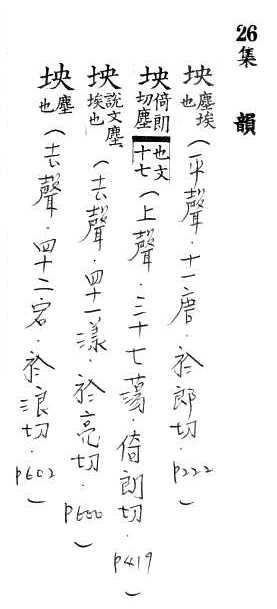 26集 韻
坱塵埃也（平聲．十一唐．於郎切．P222）
坱倚朗切塵也文十七（上聲．三十七蕩．倚朗切．P419）
坱說文塵埃也（去聲．四十一漾．於亮切．P600）
坱塵也（去聲．四十二宕．於浪切．P602）